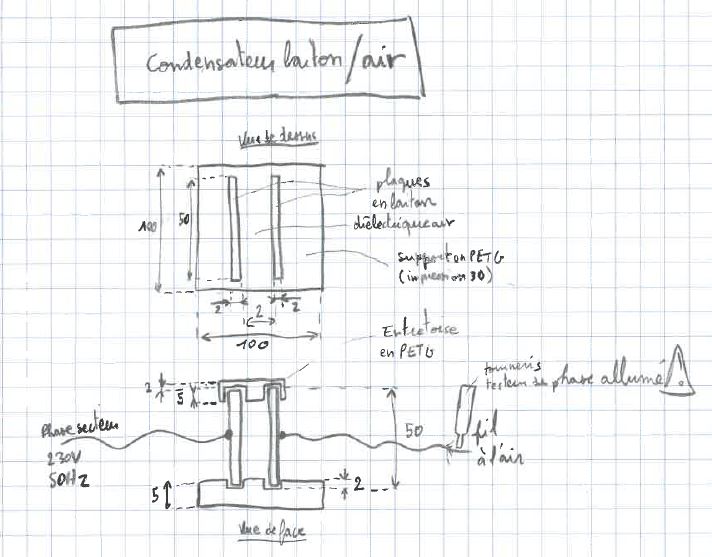 Condensateur laiton/air
Vue de dessus
plaques
en laiton
diélectrique air
support en PETG
(impression 3D)
100
50
2
2
2
100
Entretoise
en PETG
tournevis
testeur de phase allumé
!
2
5
Phase secteur
230V
50Hz
50
fil
à l'air
5
2
Vue de face